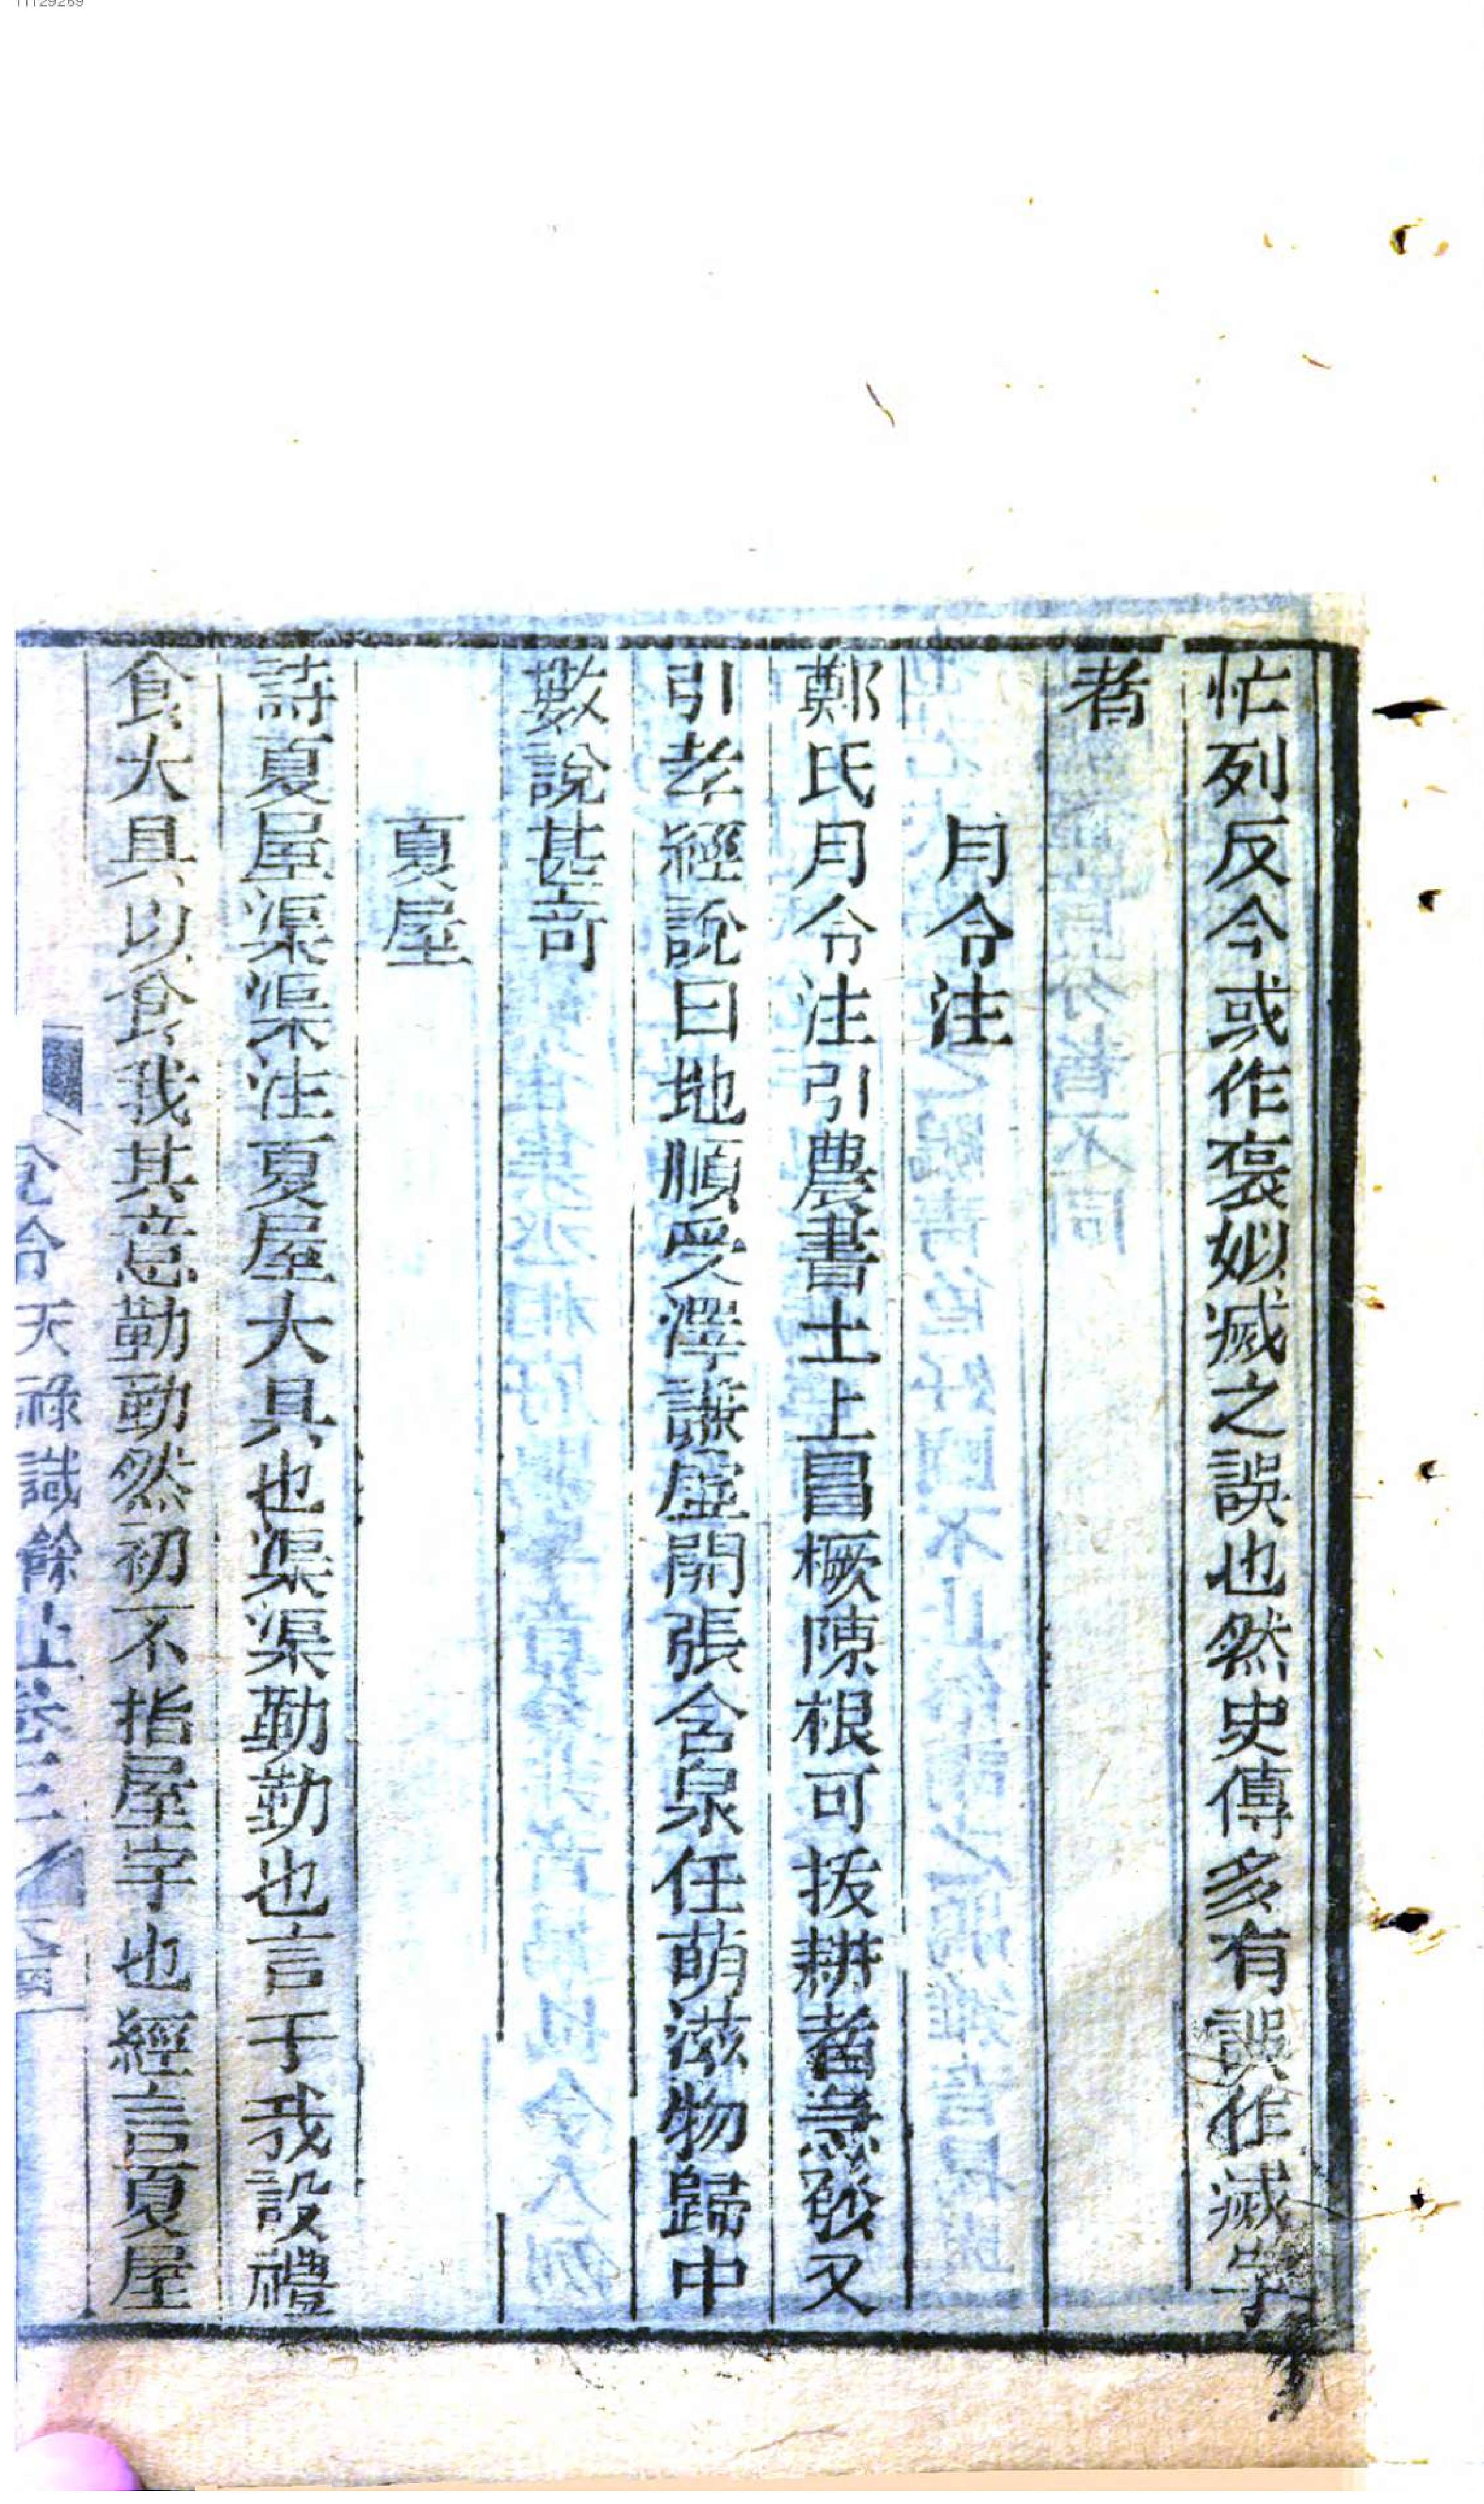 忙列反今或作褒姒滅之誤也然史傳多有誤作滅字
者
月令注
鄭氏月令注引農書土上冒橛陳根可拔耕者急發又
引孝經說曰地順受澤謙虛開張含泉任萌滋物歸中
數說甚奇
夏屋
詩夏屋渠渠注夏屋大具也渠渠勤勤也言于我設禮
食大具以食我其意勤勤然初不指屋宇也經言夏屋
天祿識餘上卷三